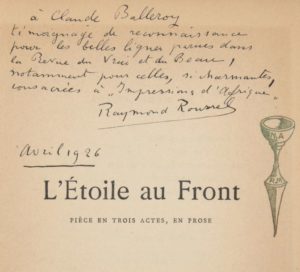 à Claude Balleroy
témoignage de reconnaissance
pour les belles lignes parues dans
la Revue du Vrai et du Beau,
notamment pour celles, si charmantes,
consacrées à "Impressions d'Afrique"
Raymond Roussel
Avril 1926
L'Étoile au Front
PIÈCE EN TROIS ACTES, EN PROSE